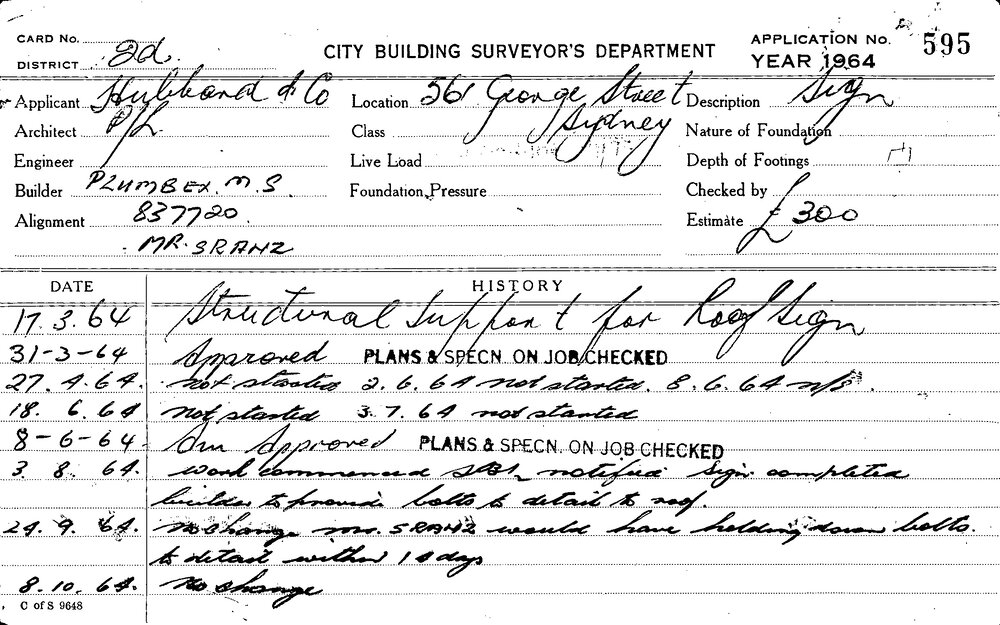 CARD No.
DISTRICT 2d.
CITY BUILDING SURVEYOR'S DEPARTMENT
APPLICATION No. 595
YEAR 1964
Applicant Hubbard & Co
P/L.
Location 561 George Street
Sydney
Description Sign
Architect
Class
Nature of Foundation
Engineer
Live Load
Depth of Footings
Builder PLUMBEX. M.S.
Foundation Pressure
Checked by
Alignment 837720.
Estimate £300
MR. SRANZ
DATE HISTORY
17.3.64 Structural Support for Roof Sign
31-3-64 Approved PLANS & SPECN. ON JOB CHECKED
27.4.64. not started 2.6.64 not started. 8.6.64 n/s.
18. 6.64 not started 3.7.64 not started
8-6-64 Am Approved PLANS & SPECN. ON JOB CHECKED
3 8. 64. work commenced notified sign completed
builder to provide bolts to detail to roof.
24. 9. 64. no change mr. SRANZ would have holding down bolts.
to detail within 14 days
8.10.64. No change
C of S 9648